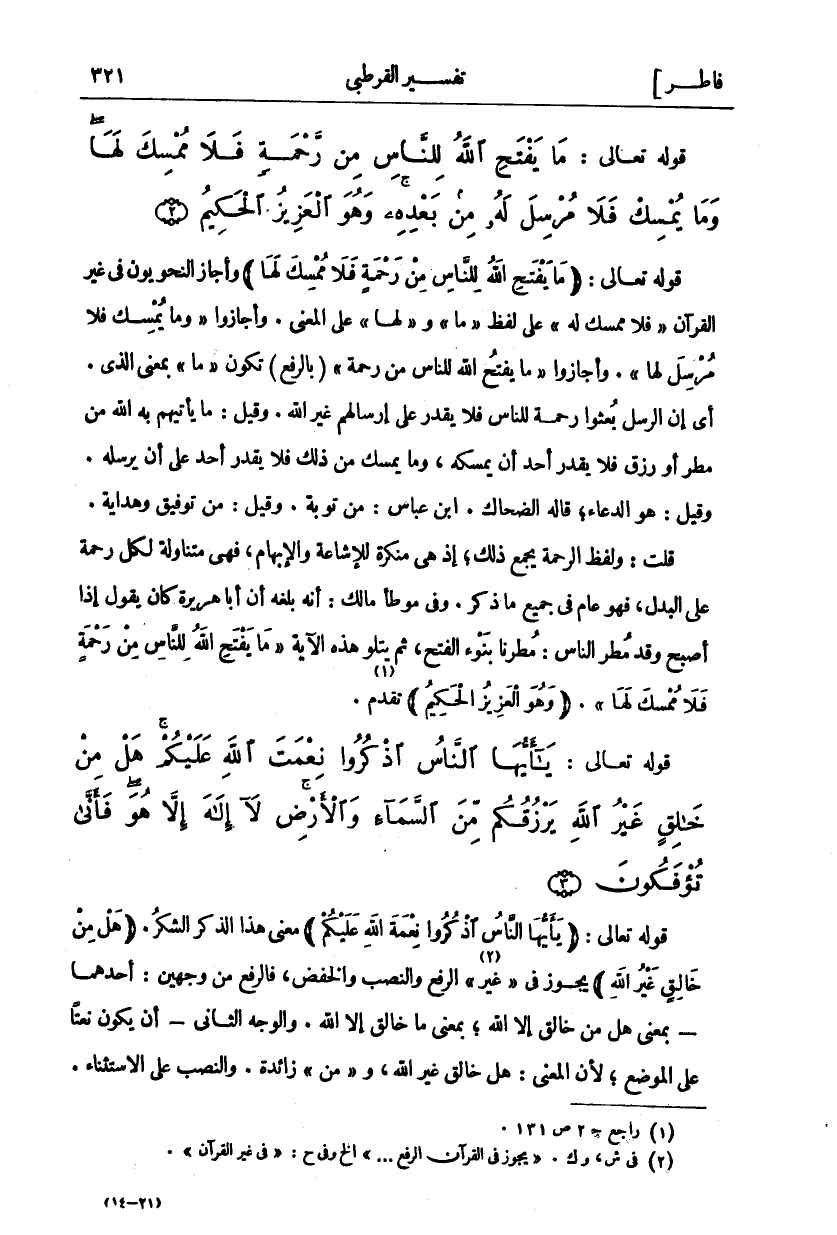 فاطر] تفسير القرطبى ٣٢١
قوله تعالى : مَا يَفْتَحِ ٱللَّهُ لِلنَّاسِ مِن رَّحْمَةٍ فَلَا مُمْسِكَ لَهَاۖ
وَمَا يُمْسِكْ فَلَا مُرْسِلَ لَهُۥ مِنۢ بَعْدِهِۦۚ وَهُوَ ٱلْعَزِيزُ ٱلْحَكِيمُ ﴿٢﴾
قوله تعالى : ﴿ مَا يَفْتَحِ اللهُ لِلنَّاسِ مِنْ رَحْمَةٍ فَلَا مُمْسِكَ لَهَا ﴾ وأجاز النحويون فى غير
القرآن « فلا ممسك له » على لفظ « ما » و « لها » على المعنى . وأجازوا « وما يُمْسِك فلا
مُرْسِلَ لها » . وأجازوا « ما يفتحُ الله للناس من رحمة » (بالرفع) تكون « ما » بمعنى الذى .
أى إن الرسل بُعثوا رحمة للناس فلا يقدر على إرسالهم غير الله . وقيل : ما يأتيهم به الله من
مطر أو رزق فلا يقدر أحد أن يمسكه ، وما يمسك من ذلك فلا يقدر أحد على أن يرسله .
وقيل : هو الدعاء؛ قاله الضحاك . ابن عباس : من توبة . وقيل : من توفيق وهداية .
قلت : ولفظ الرحمة يجمع ذلك؛ إذ هى منكرة للإشاعة والإبهام، فهى متناولة لكل رحمة
على البدل، فهو عام فى جميع ما ذكر . وفى موطأ مالك : أنه بلغه أن أبا هريرة كان يقول إذا
أصبح وقد مُطر الناس : مُطرنا بنَوْء الفتح، ثم يتلو هذه الآية « مَا يَفْتَحِ اللهُ لِلنَّاسِ مِنْ رَحْمَةٍ
فَلَا مُمْسِكَ لَهَا » . ﴿ وَهُوَ الْعَزِيزُ الْحَكِيمُ ﴾ (١) تقدم .
قوله تعالى : يَـٰٓأَيُّهَا ٱلنَّاسُ ٱذْكُرُوا نِعْمَتَ ٱللَّهِ عَلَيْكُمْۚ هَلْ مِنْ
خَـٰلِقٍ غَيْرُ ٱللَّهِ يَرْزُقُكُم مِّنَ ٱلسَّمَآءِ وَٱلْأَرْضِۚ لَآ إِلَـٰهَ إِلَّا هُوَۖ فَأَنَّىٰ
تُؤْفَكُونَ ﴿٣﴾
قوله تعالى : ﴿ يَأَيُّهَا النَّاسُ ٱذْكُرُوا نِعْمَةَ اللهِ عَلَيْكُمْ ﴾ معنى هذا الذكر الشكرُ. ﴿ هَلْ مِنْ
خَالِقٍ غَيْرُ اللهِ ﴾ يجوز فى (٢) « غير » الرفع والنصب والخفض، فالرفع من وجهين : أحدهما
— بمعنى هل من خالق إلا الله ؛ بمعنى ما خالق إلا الله . والوجه الثانى — أن يكون نعتًا
على الموضع ؛ لأن المعنى : هل خالق غير الله ، و « من » زائدة . والنصب على الاستثناء .
(١) راجع ج ٢ ص ١٣١ .
(٢) فى ش، و ك . « يجوز فى القرآن الرفع ... » الخ وفى ح : « فى غير القرآن » .
(٢١-١٤)